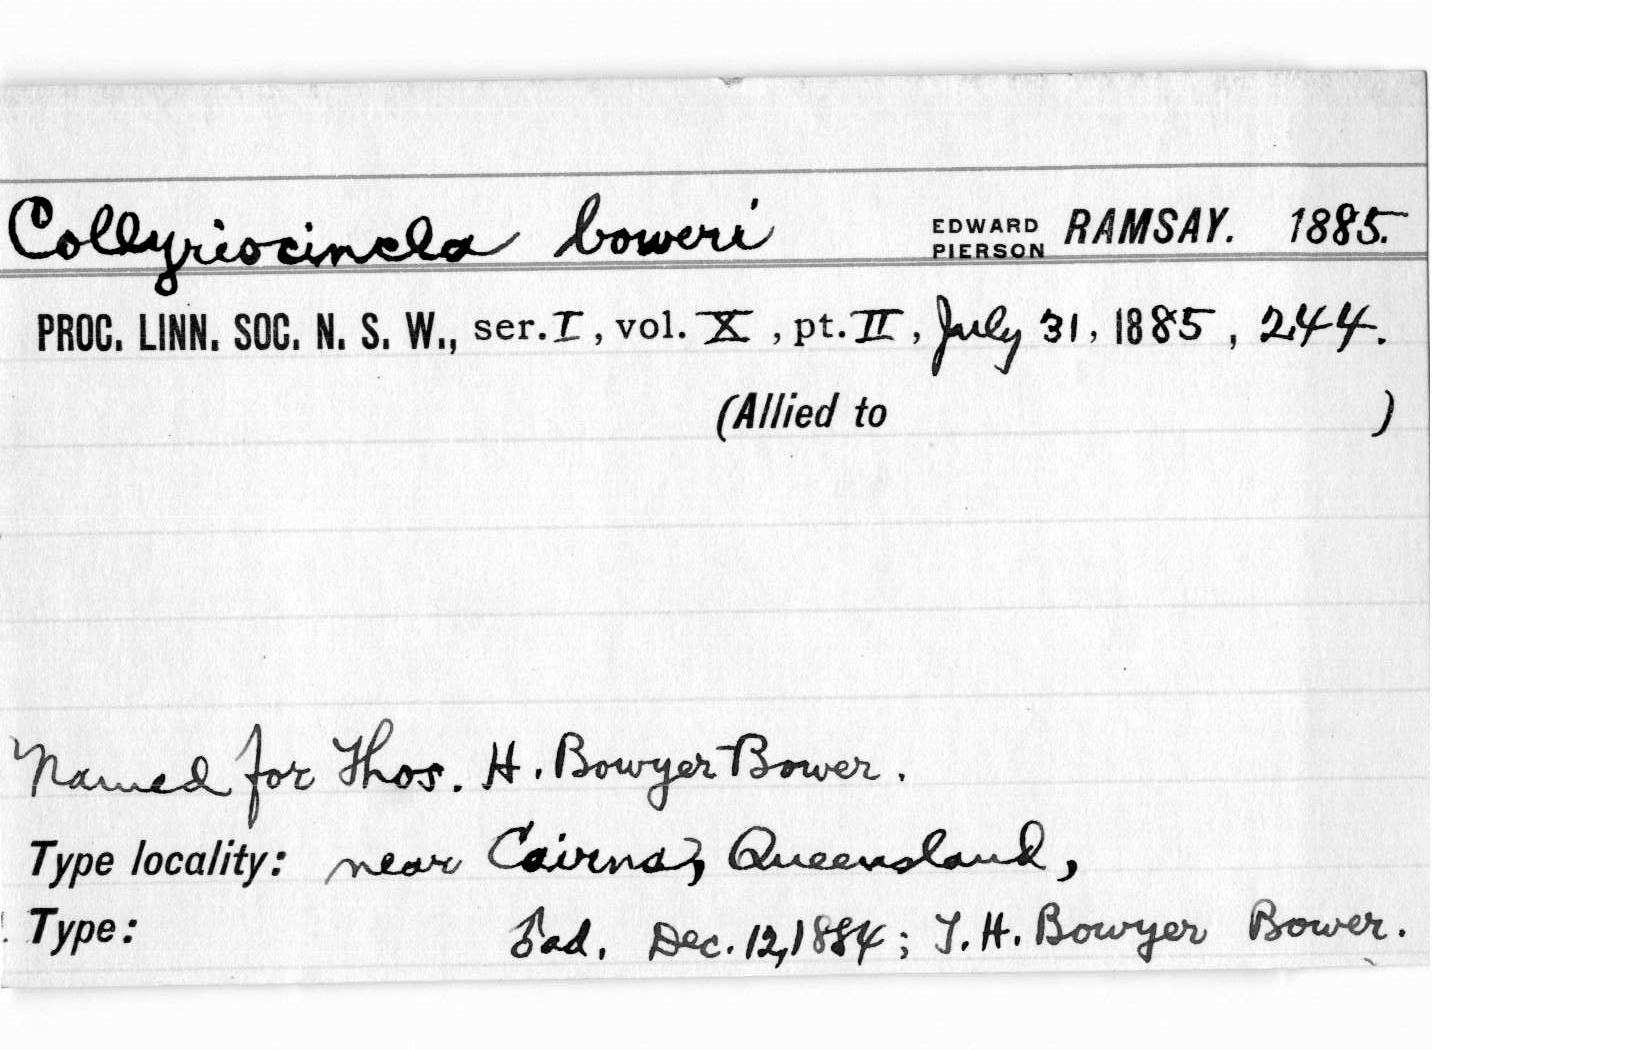 Collyriocincla boweri EDWARD PIERSON RAMSAY. 1885.
PROC. LINN. SOC. N. S. W., ser. I, vol. X, pt. II, July 31, 1885, 244.
(Allied to )
Named for Thos. H. Bowyer-Bower.
Type locality: near Cairns, Queensland,
Type: ♂ ad. Dec. 12, 1884; T. H. Bowyer Bower.